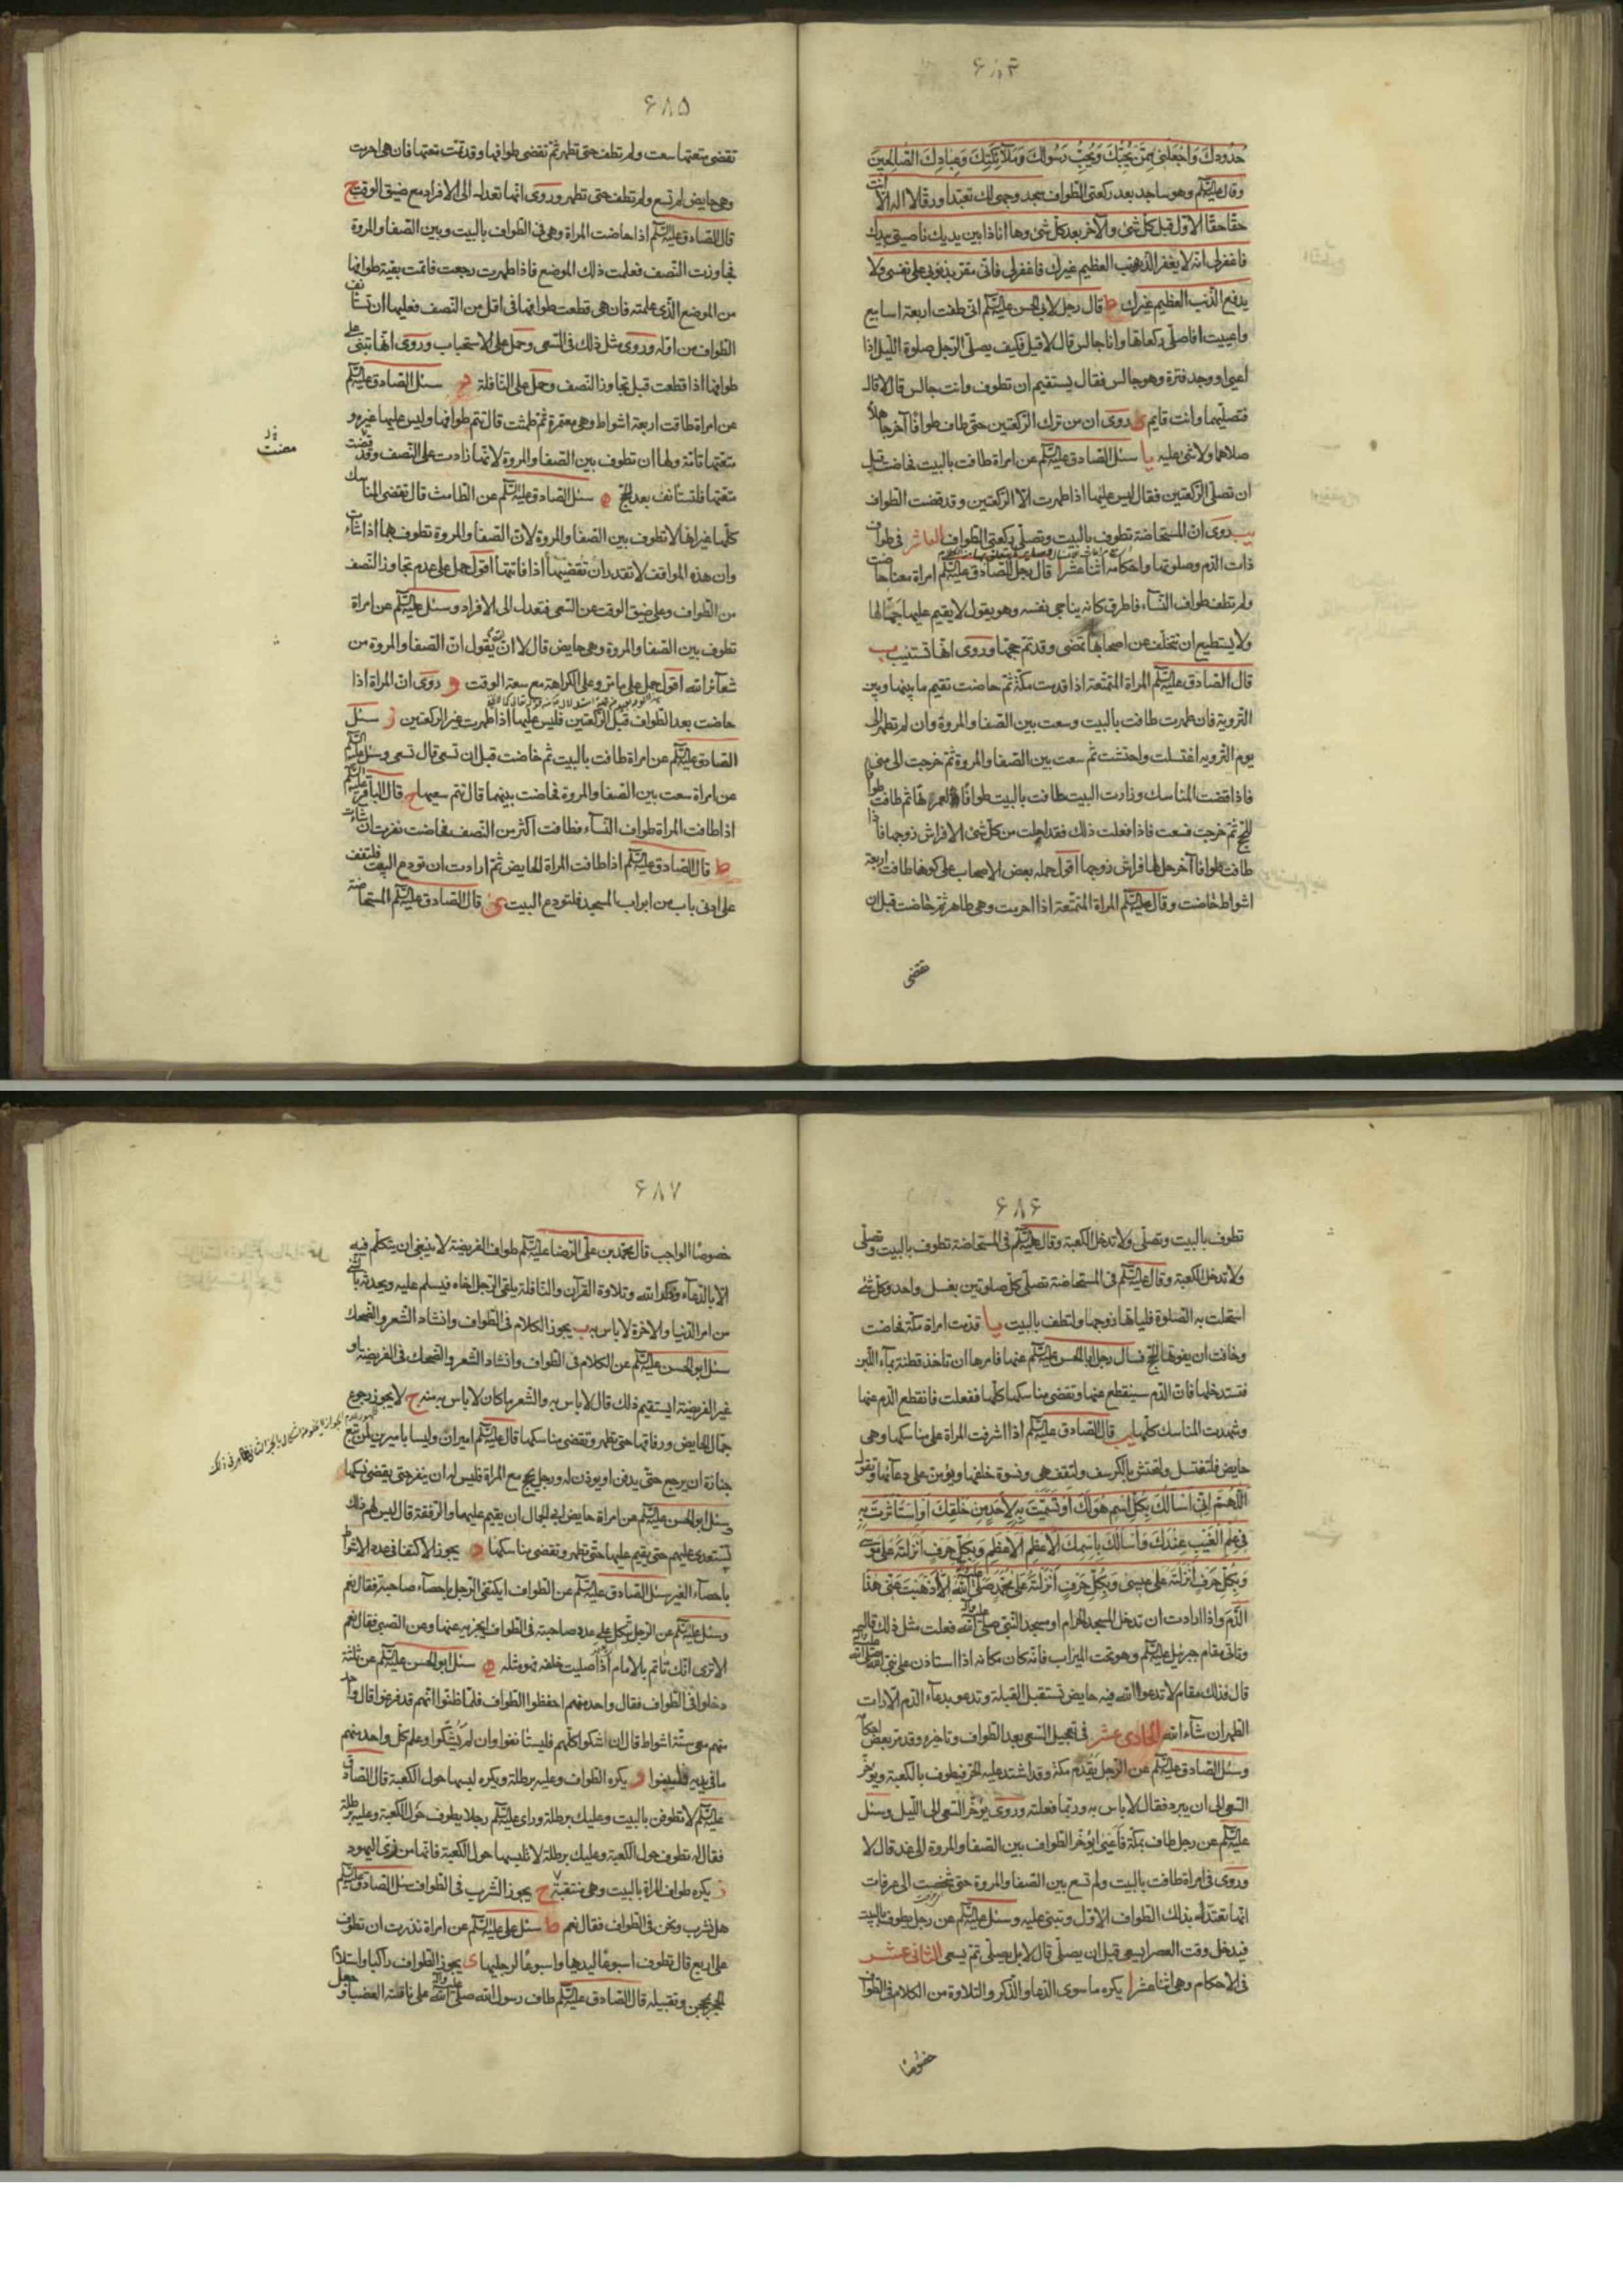 ۶۸۴
حُدُودِكَ وَاجْعَلْنِي مِمَّنْ يُحِبُّكَ وَيُحِبُّ رَسُولَكَ وَمَلَائِكَتَكَ وَعِبَادَكَ الصَّالِحِينَ
وقال عليه السلم وهو ساجد بعد ركعتى الطواف سجد وجهى لك تعبّدا ورقّا لا اله الّا انت
حقّا حقّا الاوّل قبل كلّ شئ والآخر بعد كلّ شئ وها انا ذا بين يديك ناصيتى بيدك
فاغفرلى انّه لا يغفر الذنب العظيم غيرك فاغفرلى فانّى مقرّ بذنوبى على نفسى ولا
يدفع الذّنب العظيم غيرك ط قال رجل لابى الحسن عليه السلم انّى طفت اربعة اسابيع
واعييت افاصلّى ركعاتها وانا جالس قال لا قيل فكيف يصلّى الرّجل صلوة اللّيل اذا
اعيى او وجد فترة وهو جالس فقال يستقيم ان تطوف وانت جالس قال لا قال
فتصلّيهما وانت قايم ى روى ان من ترك الرّكعتين حتى طاف طوافا آخر جاهلا
صلاهما ولا شئ عليه يا سئل الصّادق عليه السلم عن امراة طافت بالبيت فحاضت قبل
ان تصلّى الرّكعتين فقال ليس عليها اذا طهرت الّا الرّكعتين وقد قضت الطواف
يب روى انّ المستحاضة تطوف بالبيت وتصلّى ركعتى الطواف العاشر فى طواف
ذات الدّم وصلوتها واحكامه اثنا عشر ا قال رجل للصّادق عليه السلم امراة معنا حاضت
ولم تطف طواف النّساء فاطرق كانه يناجى نفسه وهو يقول لا يقيم عليها جمّالها
ولا يستطيع ان تتخلّف عن اصحابها تمضى وقد تمّ حجّها وروى انّها تستنيب ب
قال الصّادق عليه السلم المراة المتمتّعة اذا قدمت مكّة ثمّ حاضت تقيم ما بينها وبين
التّروية فان طهرت طافت بالبيت وسعت بين الصّفا والمروة وان لم تطهر الى
يوم التّرويه اغتسلت واحتشت ثمّ سعت بين الصّفا والمروة ثمّ خرجت الى منى
فاذا قضت المناسك وزارت البيت طافت بالبيت طوافا لعمرتها ثم طافت طوافا
للحج ثمّ خرجت فسعت فاذا فعلت ذلك فقد احلت من كلّ شئ الا فراش زوجها فاذا
طافت طوافا آخر حل لها فراش زوجها اقول حمله بعض الاصحاب على كونها طافت اربعة
اشواط فحاضت وقال عليه السلم المراة المتمتّعة اذا احرمت وهى طاهر ثمّ حاضت قبل ان
تقضى
۶۸۵
تقضى متعتها سعت ولم تطف حتى تطهر ثمّ تقضى طوافها وقد تمّت متعتها فان هى احرمت
وهى حايض لم تسع ولم تطف حتى تطهر وروى انّها تعدل الى الافراد مع ضيق الوقت ج
قال الصّادق عليه السلم اذا حاضت المراة وهى فى الطواف بالبيت وبين الصّفا والمروة
فجاوزت النّصف فعلمت ذلك الموضع فاذا طهرت رجعت فاتمّت بقية طوافها
من الموضع الّذى علمته فان هى قطعت طوافها فى اقل من النّصف فعليها ان تستانف
الطواف من اوّله وروى مثل ذلك فى السّعى وحمل على الاستحباب وروى انّها تبنى على
طوافها اذا قطعت قبل تجاوز النّصف وحمل على النّافلة د سئل الصّادق عليه السلم
عن امراة طافت اربعة اشواط وهى معتمرة ثمّ طمثت قال تتم طوافها وليس عليها غيره و
متعتها تامّة ولها ان تطوف بين الصّفا والمروة لانّها زادت على النّصف وقد قضت
متعتها فلتستانف بعد الحجّ ه سئل الصّادق عليه السلم عن الطامث قال تقضى المناسك
كلّها غير انّها لا تطوف بين الصّفا والمروة لانّ الصّفا والمروة تطوف بهما اذا شاءت
وان هذه المواقف لا تقدر ان تقضيها اذا فاتتها اقول حمل على عدم تجاوز النّصف
من الطواف وعلى ضيق الوقت عن السّعى فتعدل الى الافراد وسئل عليه السلم عن امراة
تطوف بين الصّفا والمروة وهى حايض قال لا انّ الله يقول انّ الصّفا والمروة من
شعآئر الله اقول حمل على ما مرّ وعلى الكراهة مع سعة الوقت و روى انّ المراة اذا
حاضت بعد الطواف قبل الرّكعتين فليس عليها اذا طهرت غير الرّكعتين ز سئل
الصّادق عليه السلم عن امراة طافت بالبيت ثم حاضت قبل ان تسعى قال تسعى وسئل عليه السلم
عن امراة سعت بين الصّفا والمروة فحاضت بينهما قال تتم سعيها ح قال الباقر عليه السلم
اذا طافت المراة طواف النّسآء فطافت اكثر من النّصف فحاضت نفرت ان شاءت
ط قال الصّادق عليه السلم اذا طافت المراة الحايض ثمّ ارادت ان تودع البيت فلتقف
على ادنى باب من ابواب المسجد فلتودع البيت ى قال الصّادق عليه السلم المستحاضة
۶۸۶
تطوف بالبيت وتصلّى ولا تدخل الكعبة وقال عليه السلم فى المستحاضة تطوف بالبيت وتصلّى
ولا تدخل الكعبة وقال عليه السلم فى المستحاضة تصلّى كلّ صلوتين بغسل واحد وكلّ شئ
استحلت به الصّلوة فلياتها زوجها ولتطف بالبيت يا قدمت امراة مكّة فحاضت
وخافت ان يفوتها الحجّ فسال رجل ابا الحسن عليه السلم عنها فامرها ان تاخذ قطنة بمآء اللّبن
فتستدخلها فانّ الدّم سينقطع عنها وتقضى مناسكها كلّها ففعلت فانقطع الدّم عنها
وشهدت المناسك كلّها يب قال الصّادق عليه السلم اذا اشرفت المراة على مناسكها وهى
حايض فلتغتسل ولتحتش بالكرسف ولتقف هى ونسوة خلفها ويؤمن على دعآئها وتقول
اللّهُمَّ اِنّى اَسْالُكَ بِكُلِّ اسْمٍ هُوَ لَكَ اَوْ تَسَمَّيْتَ بِهِ لِاَحَدٍ مِنْ خَلْقِكَ اَوِ اسْتَاْثَرْتَ بِهِ
فِى عِلْمِ الْغَيْبِ عِنْدَكَ وَاَسْالُكَ بِاسْمِكَ الْاَعْظَمِ الْاَعْظَمِ وَبِكُلِّ حَرْفٍ اَنْزَلْتَهُ عَلى مُوسى
وَبِكُلِّ حَرْفٍ اَنْزَلْتَهُ عَلى عِيسى وَبِكُلِّ حَرْفٍ اَنْزَلْتَهُ عَلى مُحَمَّدٍ صَلَّى اللهُ عليه وآله اِلَّا اَذْهَبْتَ عَنّى هذَا
الدَّمَ واذا ارادت ان تدخل المسجد الحرام او مسجد النّبى صلى الله عليه وآله فعلت مثل ذلك قال
وتاتى مقام جبرئيل عليه السلم وهو تحت الميزاب فانّه كان مكانه اذا استاذن على نبىّ الله صلى الله عليه وآله
قال فذلك مقام لا تدعوا الله فيه حايض تستقبل القبلة وتدعو بدعآء الدّم الا رات
الطهر ان شآء الله الحادى عشر فى تعجيل السّعى بعد الطواف وتاخيره وقد مرّ بعض احكامه
وسئل الصّادق عليه السلم عن الرّجل يقدم مكّة وقد اشتد عليه الحرّ فيطوف بالكعبة ويؤخّر
السّعى الى ان يبرد فقال لا باس به وربّما فعلته وروى يؤخّر السّعى الى اللّيل وسئل
عليه السلم عن رجل طاف بمكّة فاعيى ايؤخّر الطواف بين الصّفا والمروة الى غد قال لا
وروى فى امراة طافت بالبيت ولم تسع بين الصّفا والمروة حتى شخصت الى عرفات
انّها تعتد بذلك الطواف الاوّل وتبنى عليه وسئل عليه السلم عن رجل يطوف بالبيت
فيدخل وقت العصر ايسعى قبل ان يصلّى قال لا بل يصلّى ثمّ يسعى الثانى عشر
فى الاحكام وهى اثنا عشر ا يكره ما سوى الدّعا والذّكر والتّلاوة من الكلام فى الطواف
خصوصا
۶۸۷
خصوصا الواجب قال محمّد بن علىّ الرّضا عليه السلم طواف الفريضة لا ينبغى ان يتكلّم فيه
الا بالدّعآء وذكر الله وتلاوة القرآن والنّافلة يلقى الرّجل اخاه فيسلم عليه ويحدثه بالشئ
من امر الدّنيا والاخرة لا باس به ب يجوز الكلام فى الطواف وانشاد الشّعر والضّحك
سئل ابو الحسن عليه السلم عن الكلام فى الطواف وانشاد الشّعر والضّحك فى الفريضة او
غير الفريضة ايستقيم ذلك قال لا باس به والشّعر ما كان لا باس به منه ج لا يجوز رجوع
جمّال الحايض ورفاقها حتى تطهر وتقضى مناسكها قال عليه السلم اميران وليسا باميرين لمن تبع
جنازة ان يرجع حتّى يدفن او يوذن له ورجل يحجّ مع المراة فليس له ان ينفر حتى يقضى نسكها
وسئل ابو الحسن عليه السلم عن امراة حايض ابى الجمال ان يقيم عليها والرّفقة قال ليس لهم ذلك
تستعدى عليهم حتى يقيم عليها حتّى تطهر وتقضى مناسكها د يجوز الاكتفا فى عدد الاشواط
باحصآء الغير سئل الصّادق عليه السلم عن الطواف ايكتفى الرّجل باحصآء صاحبه فقال نعم
وسئل عليه السلم عن الرّجل يتّكل على عدد صاحبته فى الطواف ايجزيه عنها وعن الصّبى فقال نعم
الا ترى انّك تاتم بالامام اذا صليت خلفه فهو مثله ه سئل ابو الحسن عليه السلم عن ثلثة
دخلوا فى الطواف فقال واحد منهم احفظوا الطواف فلمّا ظنّوا انّهم قد فرغوا قال واحد
منهم معى ستّة اشواط قال ان شكوا كلّهم فليستانفوا وان لم يشكّوا وعلم كلّ واحد منهم
ما فى يديه فليبنوا و يكره الطواف وعليه برطلة ويكره لبسها حول الكعبة قال الصّادق
عليه السلم لا تطوفن بالبيت وعليك برطلة وراى عليه السلم رجلا يطوف حول الكعبة وعليه برطلة
فقال له تطوف حول الكعبة وعليك برطلة لا تلبسها حول الكعبة فانّها من زىّ اليهود
ز يكره طواف المراة بالبيت وهى متنقبة ح يجوز الشّرب فى الطواف سئل الصّادق عليه السلم
هل نشرب ونحن فى الطواف فقال نعم ط سئل على عليه السلم عن امراة نذرت ان تطوف
على اربع قال تطوف اسبوعا ليديها واسبوعا لرجليها ى يجوز الطواف راكبا واستلام
الحجر بمحجن وتقبيله قال الصّادق عليه السلم طاف رسول الله صلى الله عليه وآله على ناقته العضبا وجعل